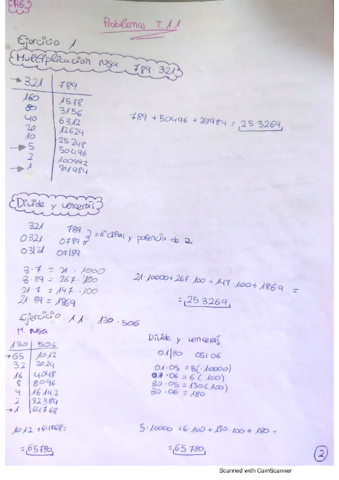 Problemas T 1.1
Ejercicio 1
Multiplicación rusa 789 321
→ 321 | 789
160 | 1578
80 | 3156
40 | 6312
20 | 12624
10 | 25248
→ 5 | 50496
2 | 100992
→ 1 | 201984
789 + 50496 + 201984 = 253269
Divide y vencerás
321 789
0321 0789
03|21 07|89
= nº cifras y potencia de 2
3·7 = 21 · 1000
3·89 = 267 · 100
21·7 = 147 · 100
21·89 = 1869
21·10000 + 267·100 + 147·100 + 1869 =
= 253269
Ejercicio 1.1 130 · 506
M. rusa
130 | 506
→ 65 | 1012
32 | 2024
16 | 4048
8 | 8096
4
2 | 32384
→ 1 | 64768
1012 + 64768 =
= 65780
Divide y vencerás
01|30 05|06
01·05 = 5(·10000)
01·06 = 6(100)
30·05 = 150(100)
30·06 = 180
5·10000 + 6·100 + 150·100 + 180 =
= 65780
2
Scanned with CamScanner